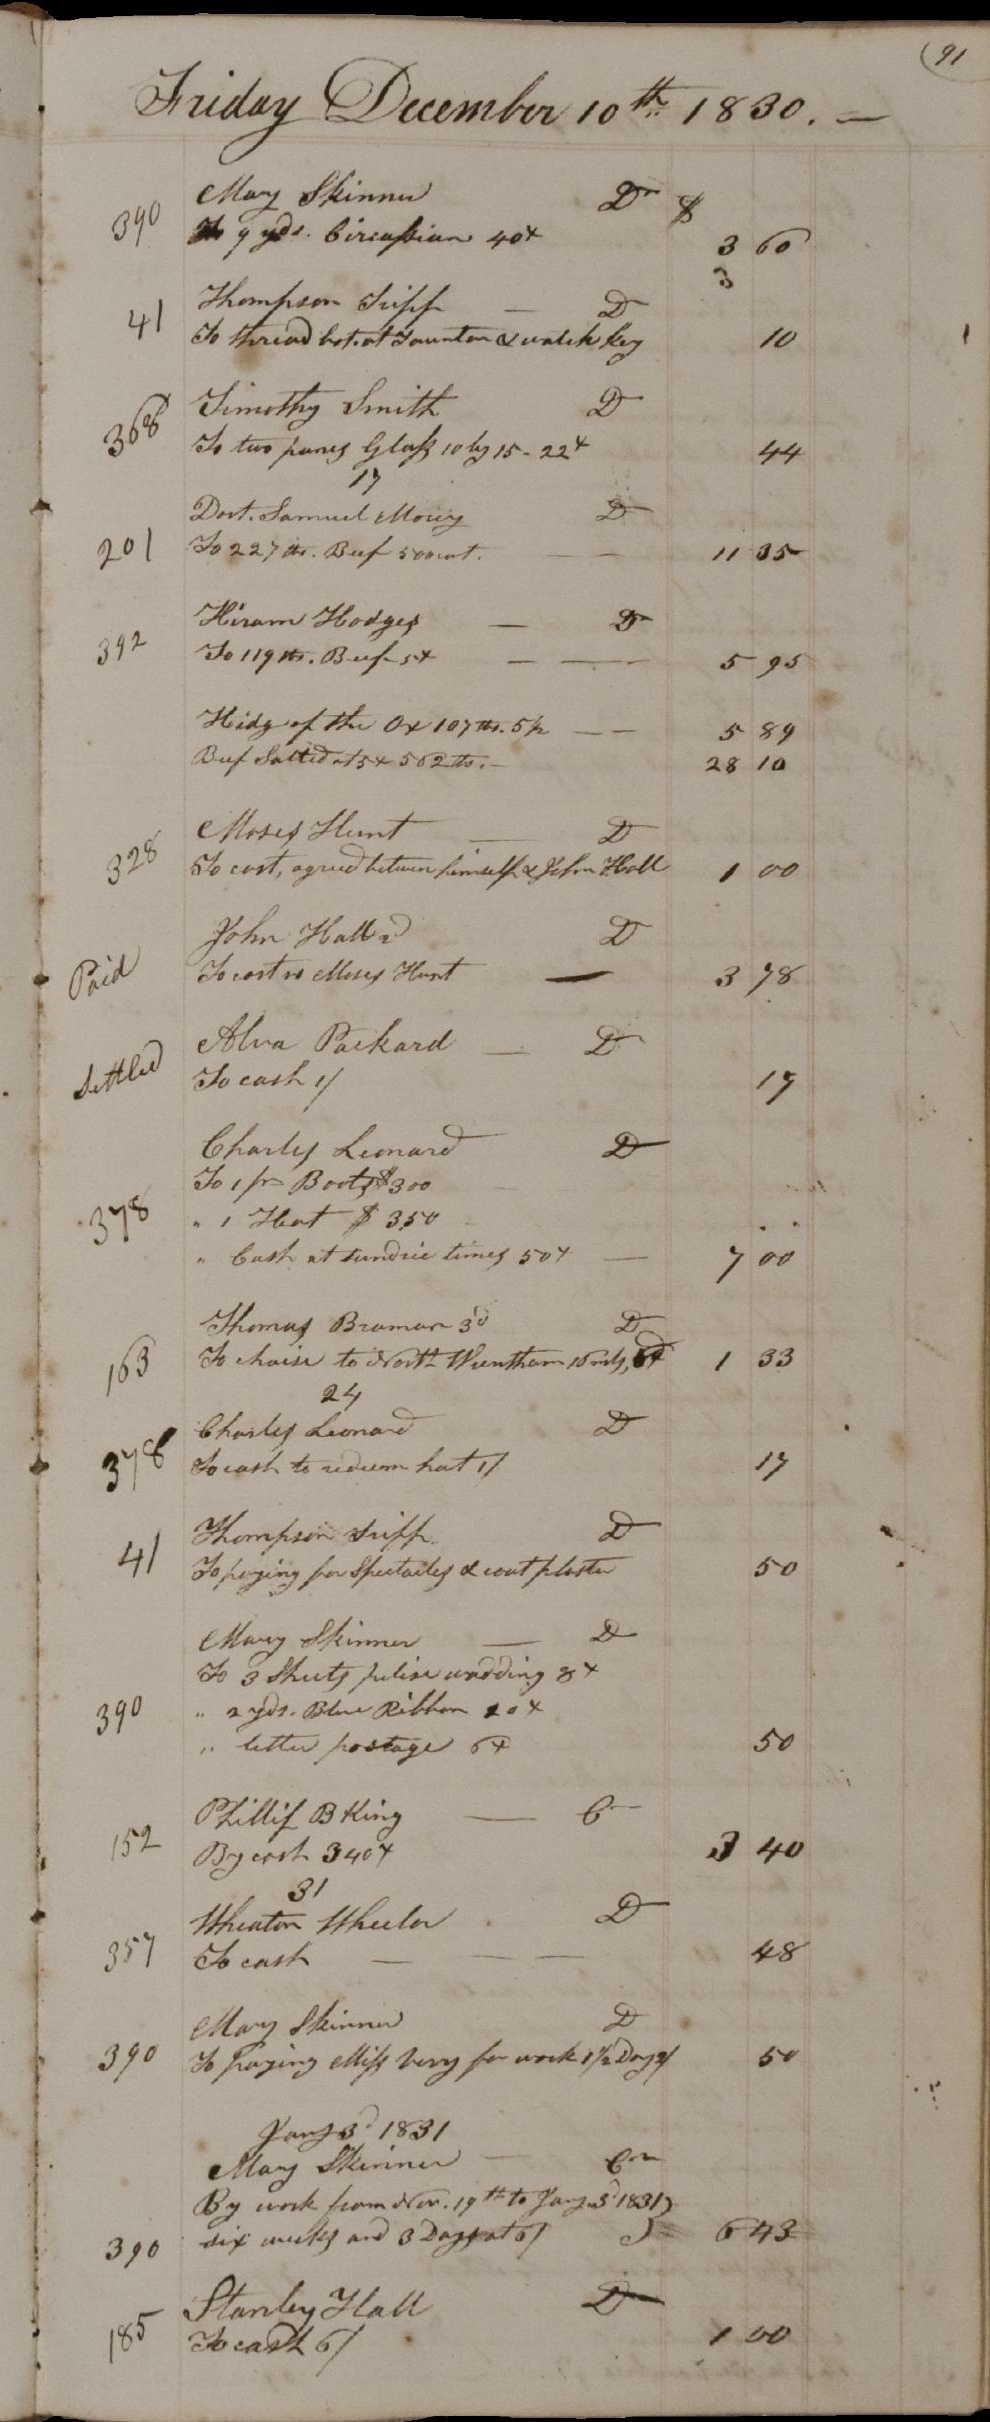 91
Friday December 10th 1830. —
Mary Skinner Dr $
390 To 9 yds. Circassian 40x 3 60
3
Thompson Tripp — Dr
41 To thread bot. at Taunton & watch key 10
Timothy Smith Dr
368 To two panes Glass 10 by 15 - 22x 44
17
Doct. Samuel Morey Dr
201 To 227 lbs. Beef 500 cwt. — — 11 35
Hiram Hodges — Dr
392 To 119 lbs. Beef 5x — — 5 95
Hidg of the Ox 107 lbs. 5½ — — 5 89
Beef Salted at 5x 562 lbs. — 28 10
Moses Hunt — Dr
328 To cost, agreed between himself & John Hall 1 00
John Hall 2d Dr
Paid To cost vs Moses Hunt — 3 78
Alva Packard — Dr
Settled To cash 1/ 17
Charles Leonard Dr
To 1 pr Boots $300
378 " 1 Hat $350
" Cash at sundrie times 50x — 7 00
Thomas Braman 3d Dr
163 To chaise to North Wrentham 16 mls, 1 33
24
Charles Leonard Dr
378 To cash to redeem hat 1/ 17
Thompson Tripp. Dr
41 To paying for Spectacles & court plaster 50
Mary Skinner — Dr
To 3 Sheets pelise wadding 8x
390 " 2 yds. Blue Ribbon 20x
" letter postage 6x 50
Phillip B King — Cr
152 By cash 340x 3 40
31
Wheaton Wheelor Dr
357 To cash — — — 48
Mary Skinner Dr
390 To paying Miss Very for work 1½ Day 2/ 50
Jany 3d 1831
Mary Skinner — Cr
By work from Nov. 19th to Jany 3d 1831
390 six weeks and 3 Days at 6/ 6 43
Stanley Hall Dr
185 To cash 6/ 1 00